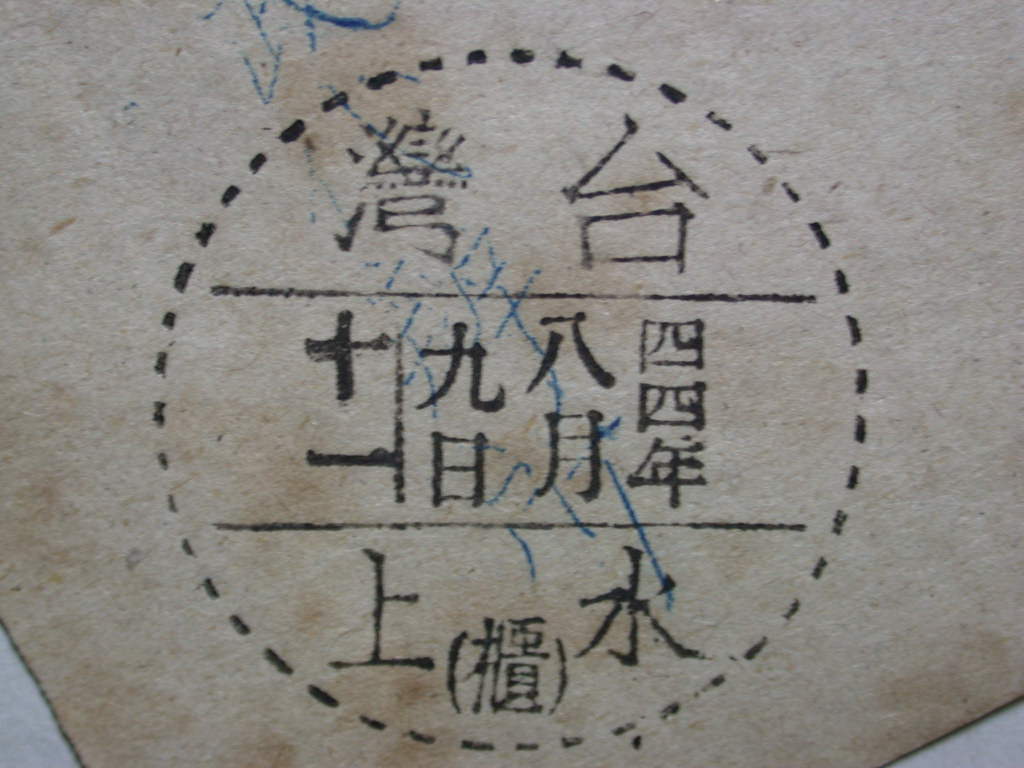 台灣
四四年
八月
九日
十一
水上
(櫃)